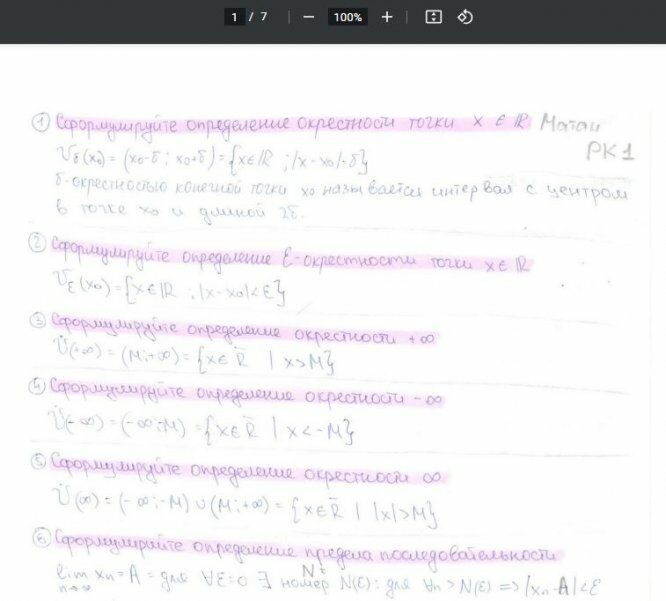 1 / 7 100%
① Сформулируйте определение окрестности точки x ∈ ℝ Матан
РК1
U_δ(x₀) = (x₀-δ ; x₀+δ) = {x∈ℝ ; |x-x₀|<δ}
δ-окрестностью конечной точки x₀ называется интервал с центром
в точке x₀ и длиной 2δ.
② Сформулируйте определение ε-окрестности точки x∈ℝ
U_ε(x₀) = {x∈ℝ ; |x-x₀|<ε}
③ Сформулируйте определение окрестности +∞
Ů(+∞) = (M;+∞) = {x∈R̄ | x>M}
④ Сформулируйте определение окрестности -∞
Ů(-∞) = (-∞;-M) = {x∈R̄ | x<-M}
⑤ Сформулируйте определение окрестности ∞
Ů(∞) = (-∞;-M) ∪ (M;+∞) = {x∈R̄ | |x|>M}
⑥ Сформулируйте определение предела последовательности
lim xn = A = для ∀ε>0 ∃ номер N(ε): для ∀n > N(ε) => |xn-A|<ε
n→∞